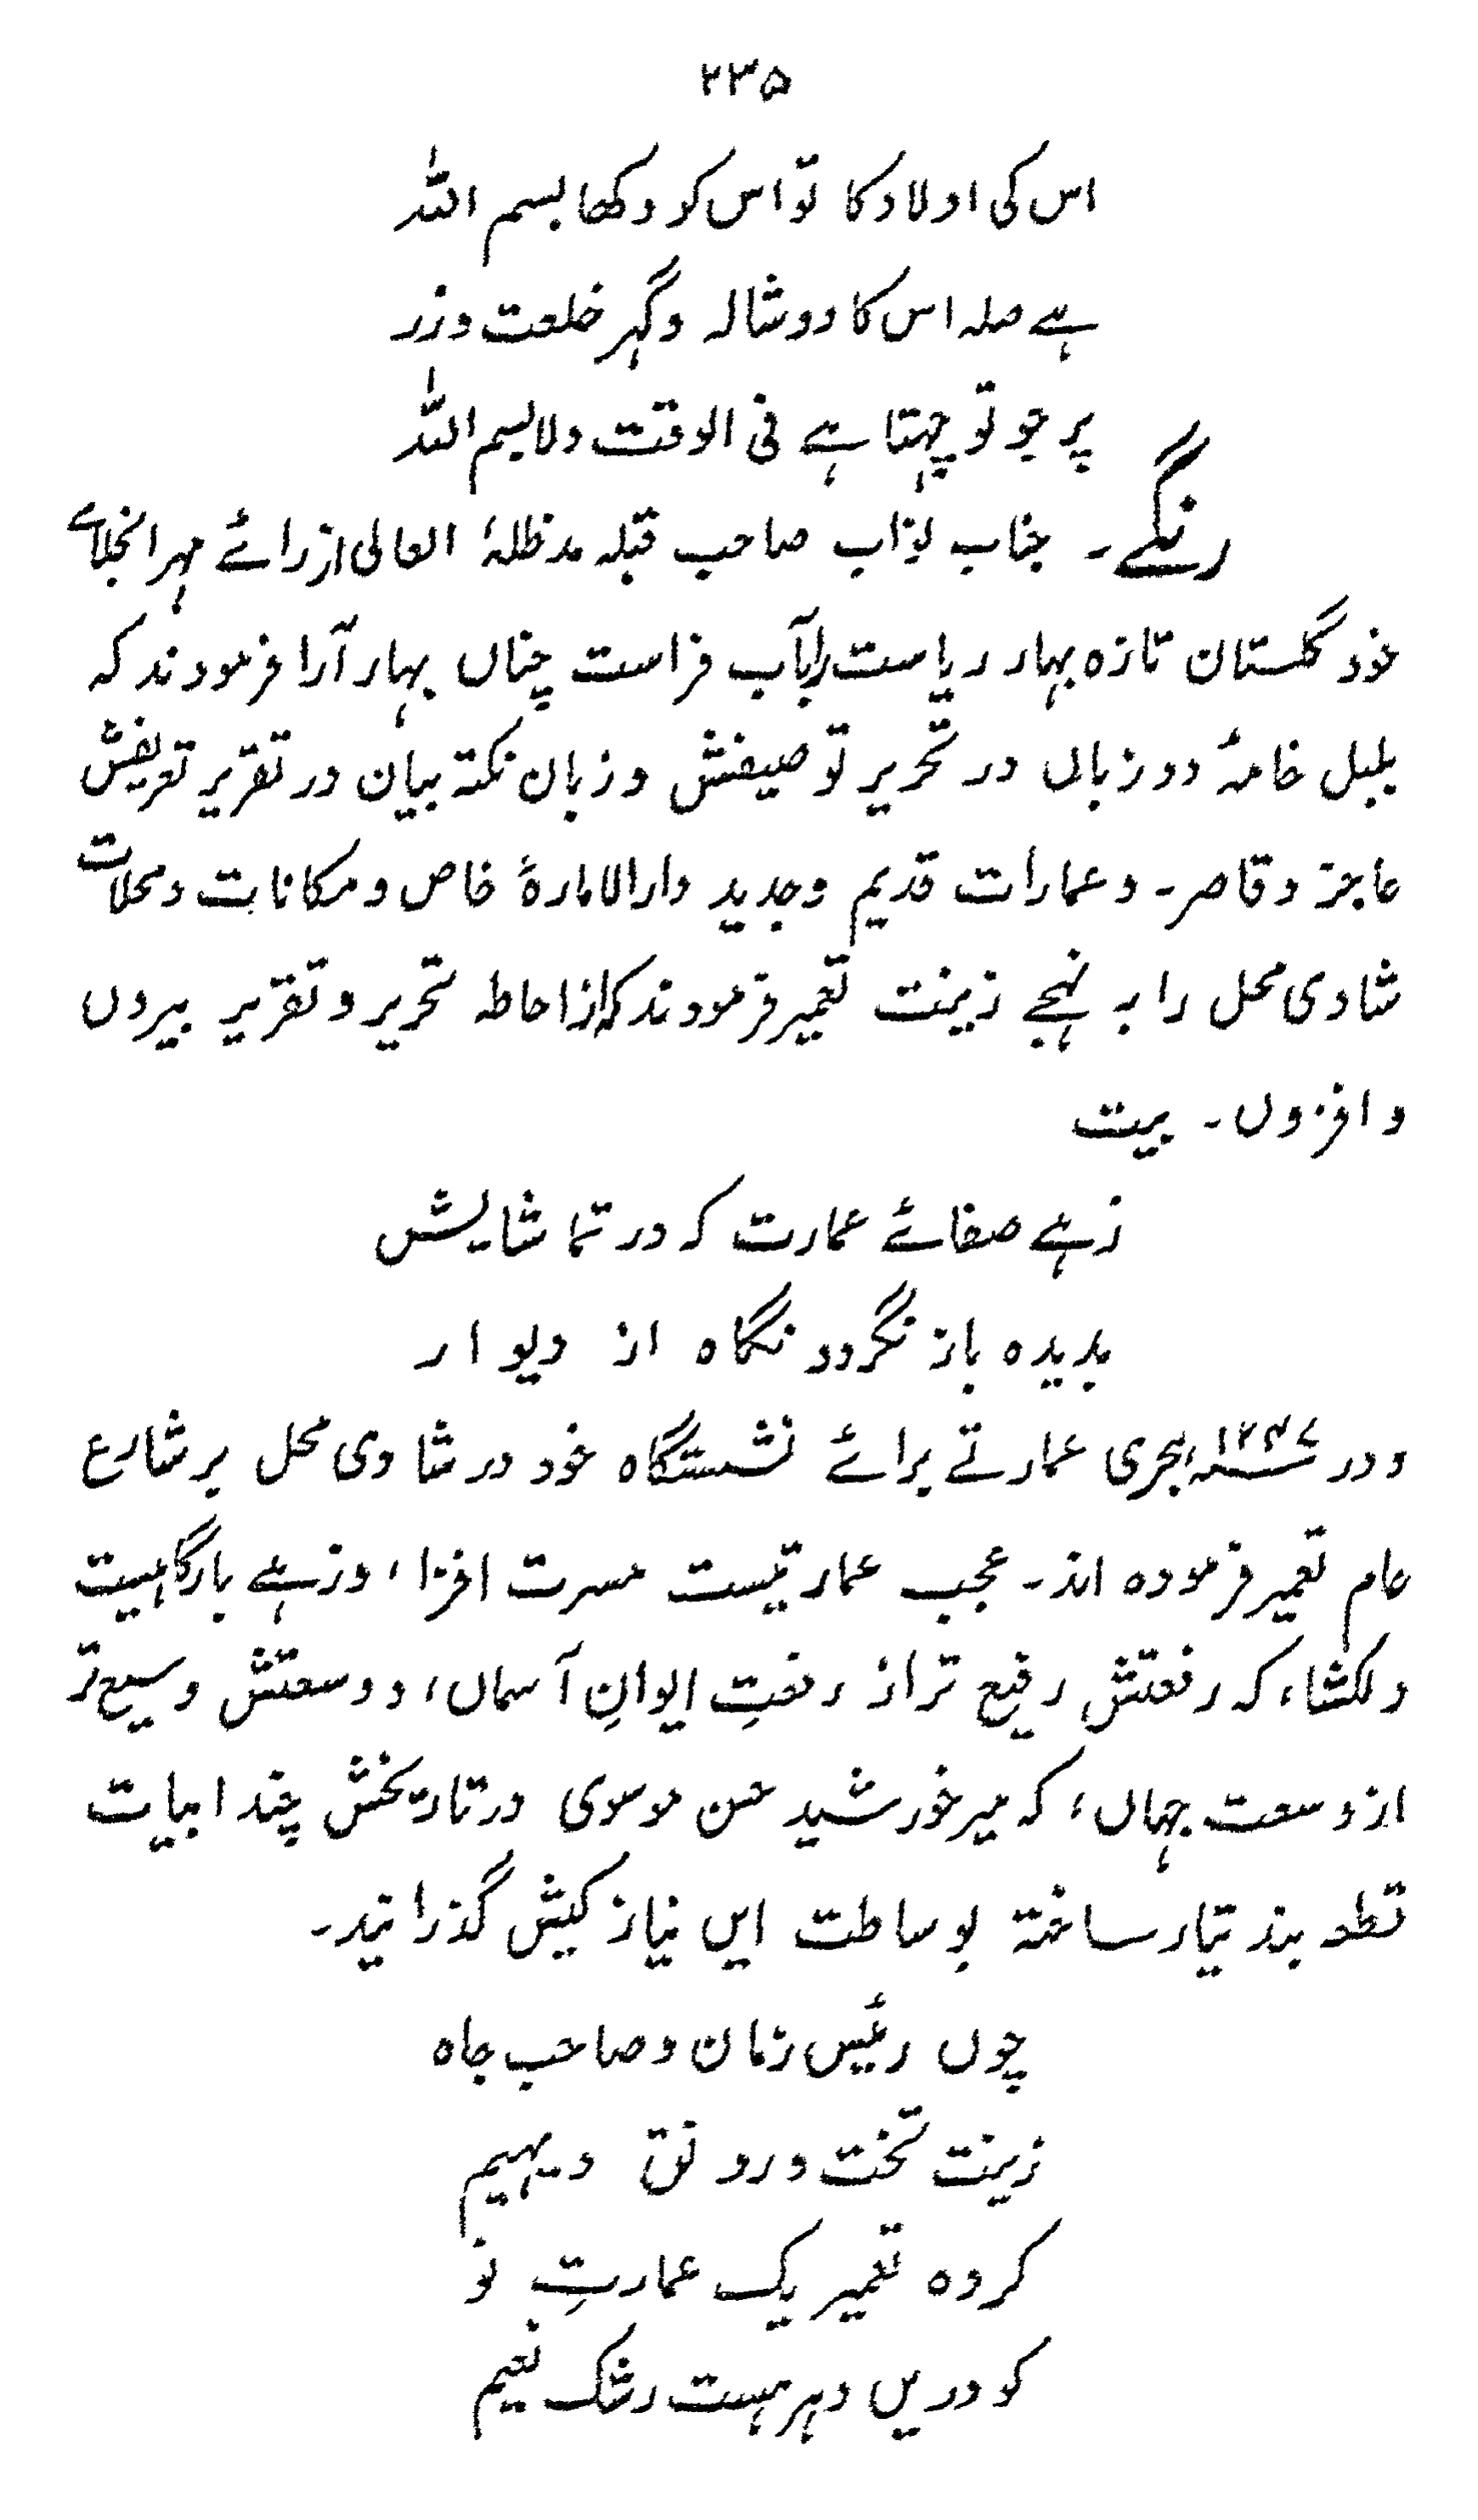 ۲۳۵
اس کی اولاد کا تو اس کو دکھا بسم اللہ
ہے صلہ اس کا دوشالہ وگہر خلعت و زر
پر جو تو چہتا ہے فی الوقت ولا بسم اللہ
رنگے۔ جناب نواب صاحب قبلہ مدظلہٗ العالی از رائے مہر انجلائے
خود گلستان تازہ بہار ریاست را بآب فراست چناں بہار آرا فرمودند کہ
بلبل خامۂ دو زباں در تحریر توصیفش و زبان نکتہ بیان در تقریر تعریفش
عاجز و قاصر۔ وعمارات قدیم وجدید دارالامارۂ خاص و مکانات و محلات
شادی محل را بہ نہجے زینت تعمیر فرمودند کہ از احاطہ تحریر و تقریر بیروں
و افزوں۔ بیت
زہے صفائے عمارت کہ در تماشایش
بدیدہ باز نگردد نگاہ از دیوار
و در ۱۲۴۷ ہجری عمارتے برائے نشستگاہ خود در شادی محل بر شارع
عام تعمیر فرمودہ اند۔ عجب عمارتیست مسرت افزا، و زہے بارگاہیست
دلکشا، کہ رفعتش رفیع تر از رفعتِ ایوانِ آسماں، و وسعتش وسیع تر
از وسعت جہاں، کہ میر خورشید حسن موسوی در تاریخش چند ابیات
قطعہ بند تیار ساختہ بوساطت ایں نیاز کیش گذرانید۔
چوں رئیس زمان و صاحب جاہ
زینت تخت و رونق دیہیم
کردہ تعمیر یک عمارتِ نو
کو دریں دہر ہست رشک نعیم